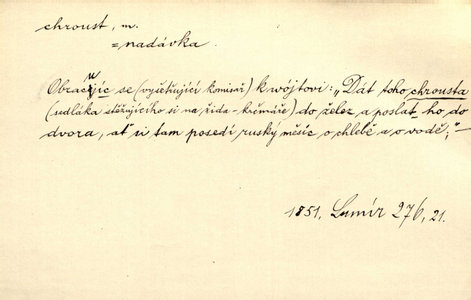 chroust, m.
= nadávka.
Obracuje se (vyšetřující komisař) k wójtovi: „Dát toho chrousta
(sedláka stěžujícího si na žida-krčmáře) do želez a poslat ho do
dvora, ať si tam posedí ruský měsíc o chlebě a o vodě;" —
1851. Lumír 276, 21.